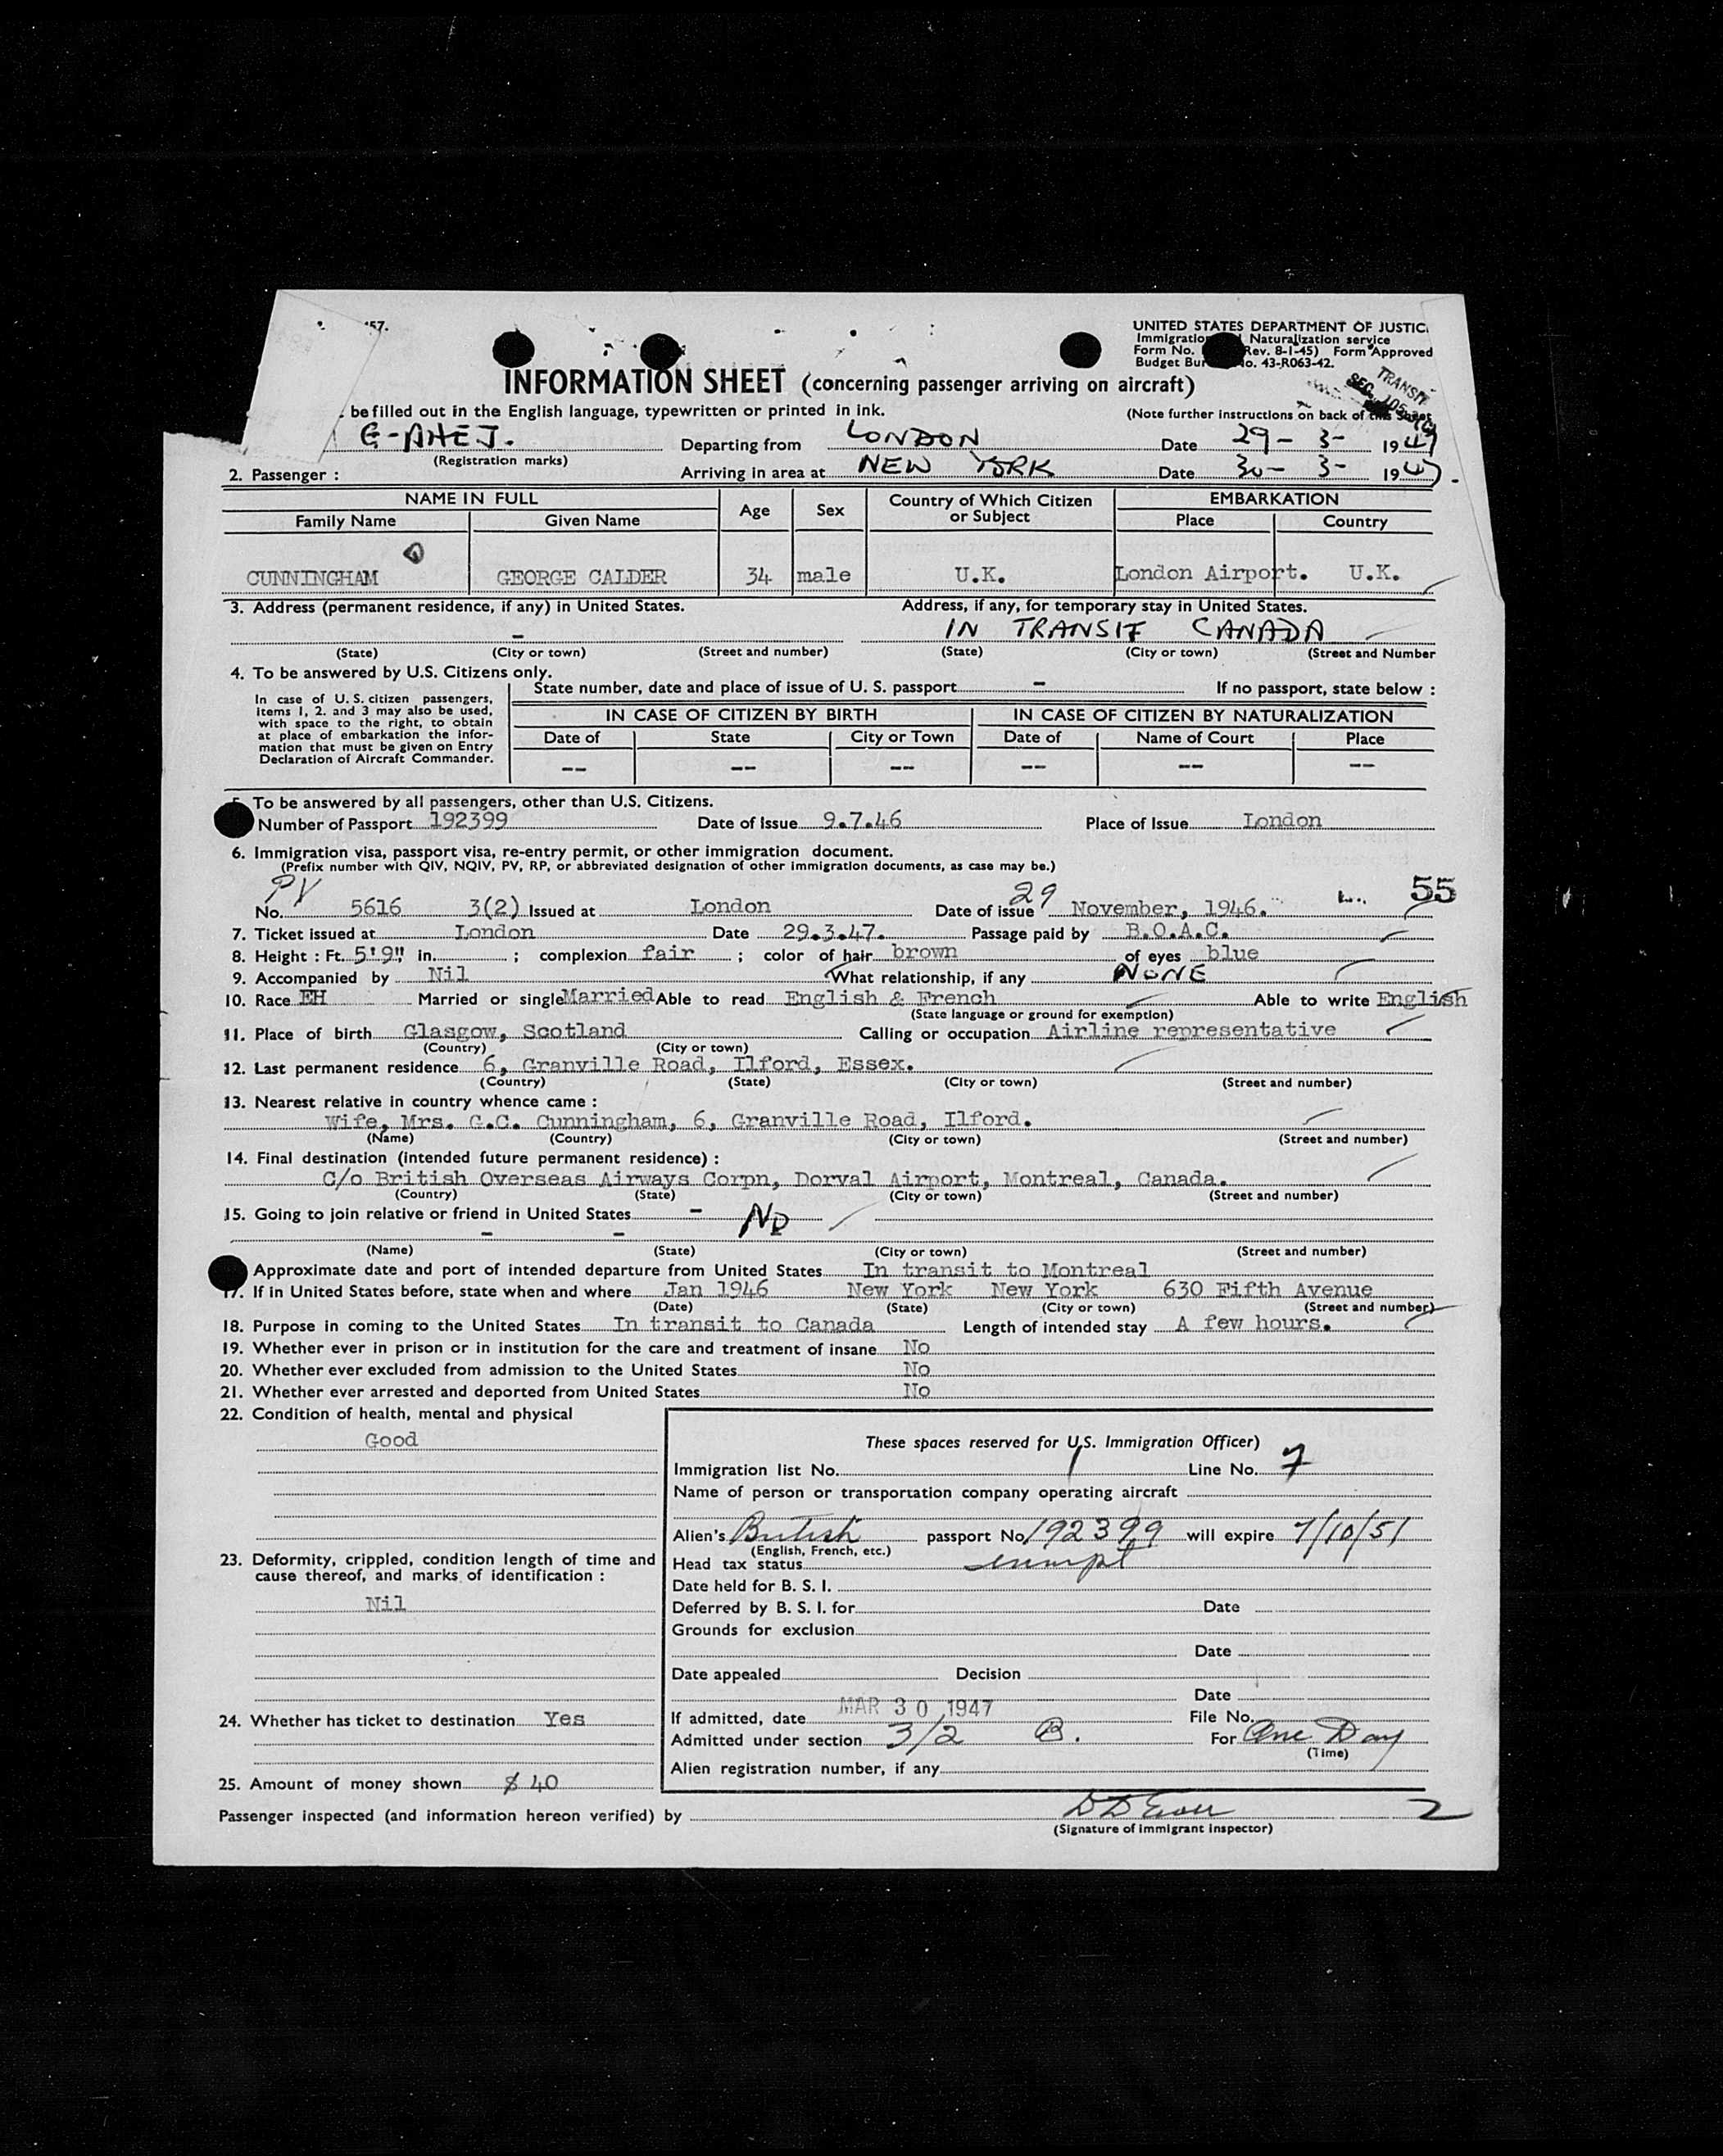 57.
UNITED STATES DEPARTMENT OF JUSTIC
Immigratio Naturalization service
Form No. Rev. 8-1-45) Form Approved
Budget Bur No. 43-R063-42.
INFORMATION SHEET (concerning passenger arriving on aircraft)
TRANSIT
SEC.
be filled out in the English language, typewritten or printed in ink.
(Note further instructions on back of this Sheet
G-AHEJ. Departing from LONDON Date 29-3- 1947
(Registration marks)
2. Passenger : Arriving in area at NEW YORK Date 30-3- 1947.
NAME IN FULL Age Sex Country of Which Citizen or Subject EMBARKATION
Family Name Given Name Place Country
CUNNINGHAM GEORGE CALDER 34 male U.K. London Airport. U.K.
3. Address (permanent residence, if any) in United States. Address, if any, for temporary stay in United States.
- IN TRANSIT CANADA
(State) (City or town) (Street and number) (State) (City or town) (Street and Number
4. To be answered by U.S. Citizens only.
In case of U.S. citizen passengers,
items 1, 2. and 3 may also be used,
with space to the right, to obtain
at place of embarkation the infor-
mation that must be given on Entry
Declaration of Aircraft Commander.
State number, date and place of issue of U. S. passport - If no passport, state below :
IN CASE OF CITIZEN BY BIRTH IN CASE OF CITIZEN BY NATURALIZATION
Date of State City or Town Date of Name of Court Place
-- -- -- -- -- --
To be answered by all passengers, other than U.S. Citizens.
Number of Passport 192399 Date of Issue 9.7.46 Place of Issue London
6. Immigration visa, passport visa, re-entry permit, or other immigration document.
(Prefix number with QIV, NQIV, PV, RP, or abbreviated designation of other immigration documents, as case may be.)
PV
No. 5616 3(2) Issued at London Date of issue 29 November, 1946. 55
7. Ticket issued at London Date 29.3.47. Passage paid by B.O.A.C.
8. Height : Ft. 5'9" in. ; complexion fair ; color of hair brown of eyes blue
9. Accompanied by Nil What relationship, if any NONE
10. Race EH Married or single Married Able to read English & French Able to write English
(State language or ground for exemption)
11. Place of birth Glasgow, Scotland Calling or occupation Airline representative
(Country) (City or town)
12. Last permanent residence 6, Granville Road, Ilford, Essex.
(Country) (State) (City or town) (Street and number)
13. Nearest relative in country whence came :
Wife, Mrs. G.C. Cunningham, 6, Granville Road, Ilford.
(Name) (Country) (City or town) (Street and number)
14. Final destination (intended future permanent residence) :
C/o British Overseas Airways Corpn, Dorval Airport, Montreal, Canada.
(Country) (State) (City or town) (Street and number)
15. Going to join relative or friend in United States - NO
- -
(Name) (State) (City or town) (Street and number)
Approximate date and port of intended departure from United States In transit to Montreal
17. If in United States before, state when and where Jan 1946 New York New York 630 Fifth Avenue
(Date) (State) (City or town) (Street and number)
18. Purpose in coming to the United States In transit to Canada Length of intended stay A few hours.
19. Whether ever in prison or in institution for the care and treatment of insane No
20. Whether ever excluded from admission to the United States No
21. Whether ever arrested and deported from United States No
22. Condition of health, mental and physical
Good
23. Deformity, crippled, condition length of time and
cause thereof, and marks of identification :
Nil
24. Whether has ticket to destination Yes
25. Amount of money shown $ 40
These spaces reserved for U.S. Immigration Officer)
Immigration list No. 1 Line No. 7
Name of person or transportation company operating aircraft
Alien's British passport No 192399 will expire 7/10/51
(English, French, etc.)
Head tax status exempt
Date held for B. S. I.
Deferred by B. S. I. for Date
Grounds for exclusion
Date
Date appealed Decision
Date
If admitted, date MAR 30 1947 File No.
Admitted under section 3/2 B. For One Day
(Time)
Alien registration number, if any
Passenger inspected (and information hereon verified) by 2
(Signature of immigrant inspector)